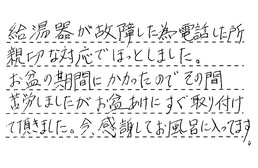 給湯器が故障した為電話した所
親切な対応でほっとしました。
お盆の期間にかかったのでその間
苦労しましたがお盆あけにすぐ取り付け
て頂きました。今、感謝してお風呂に入ってます。